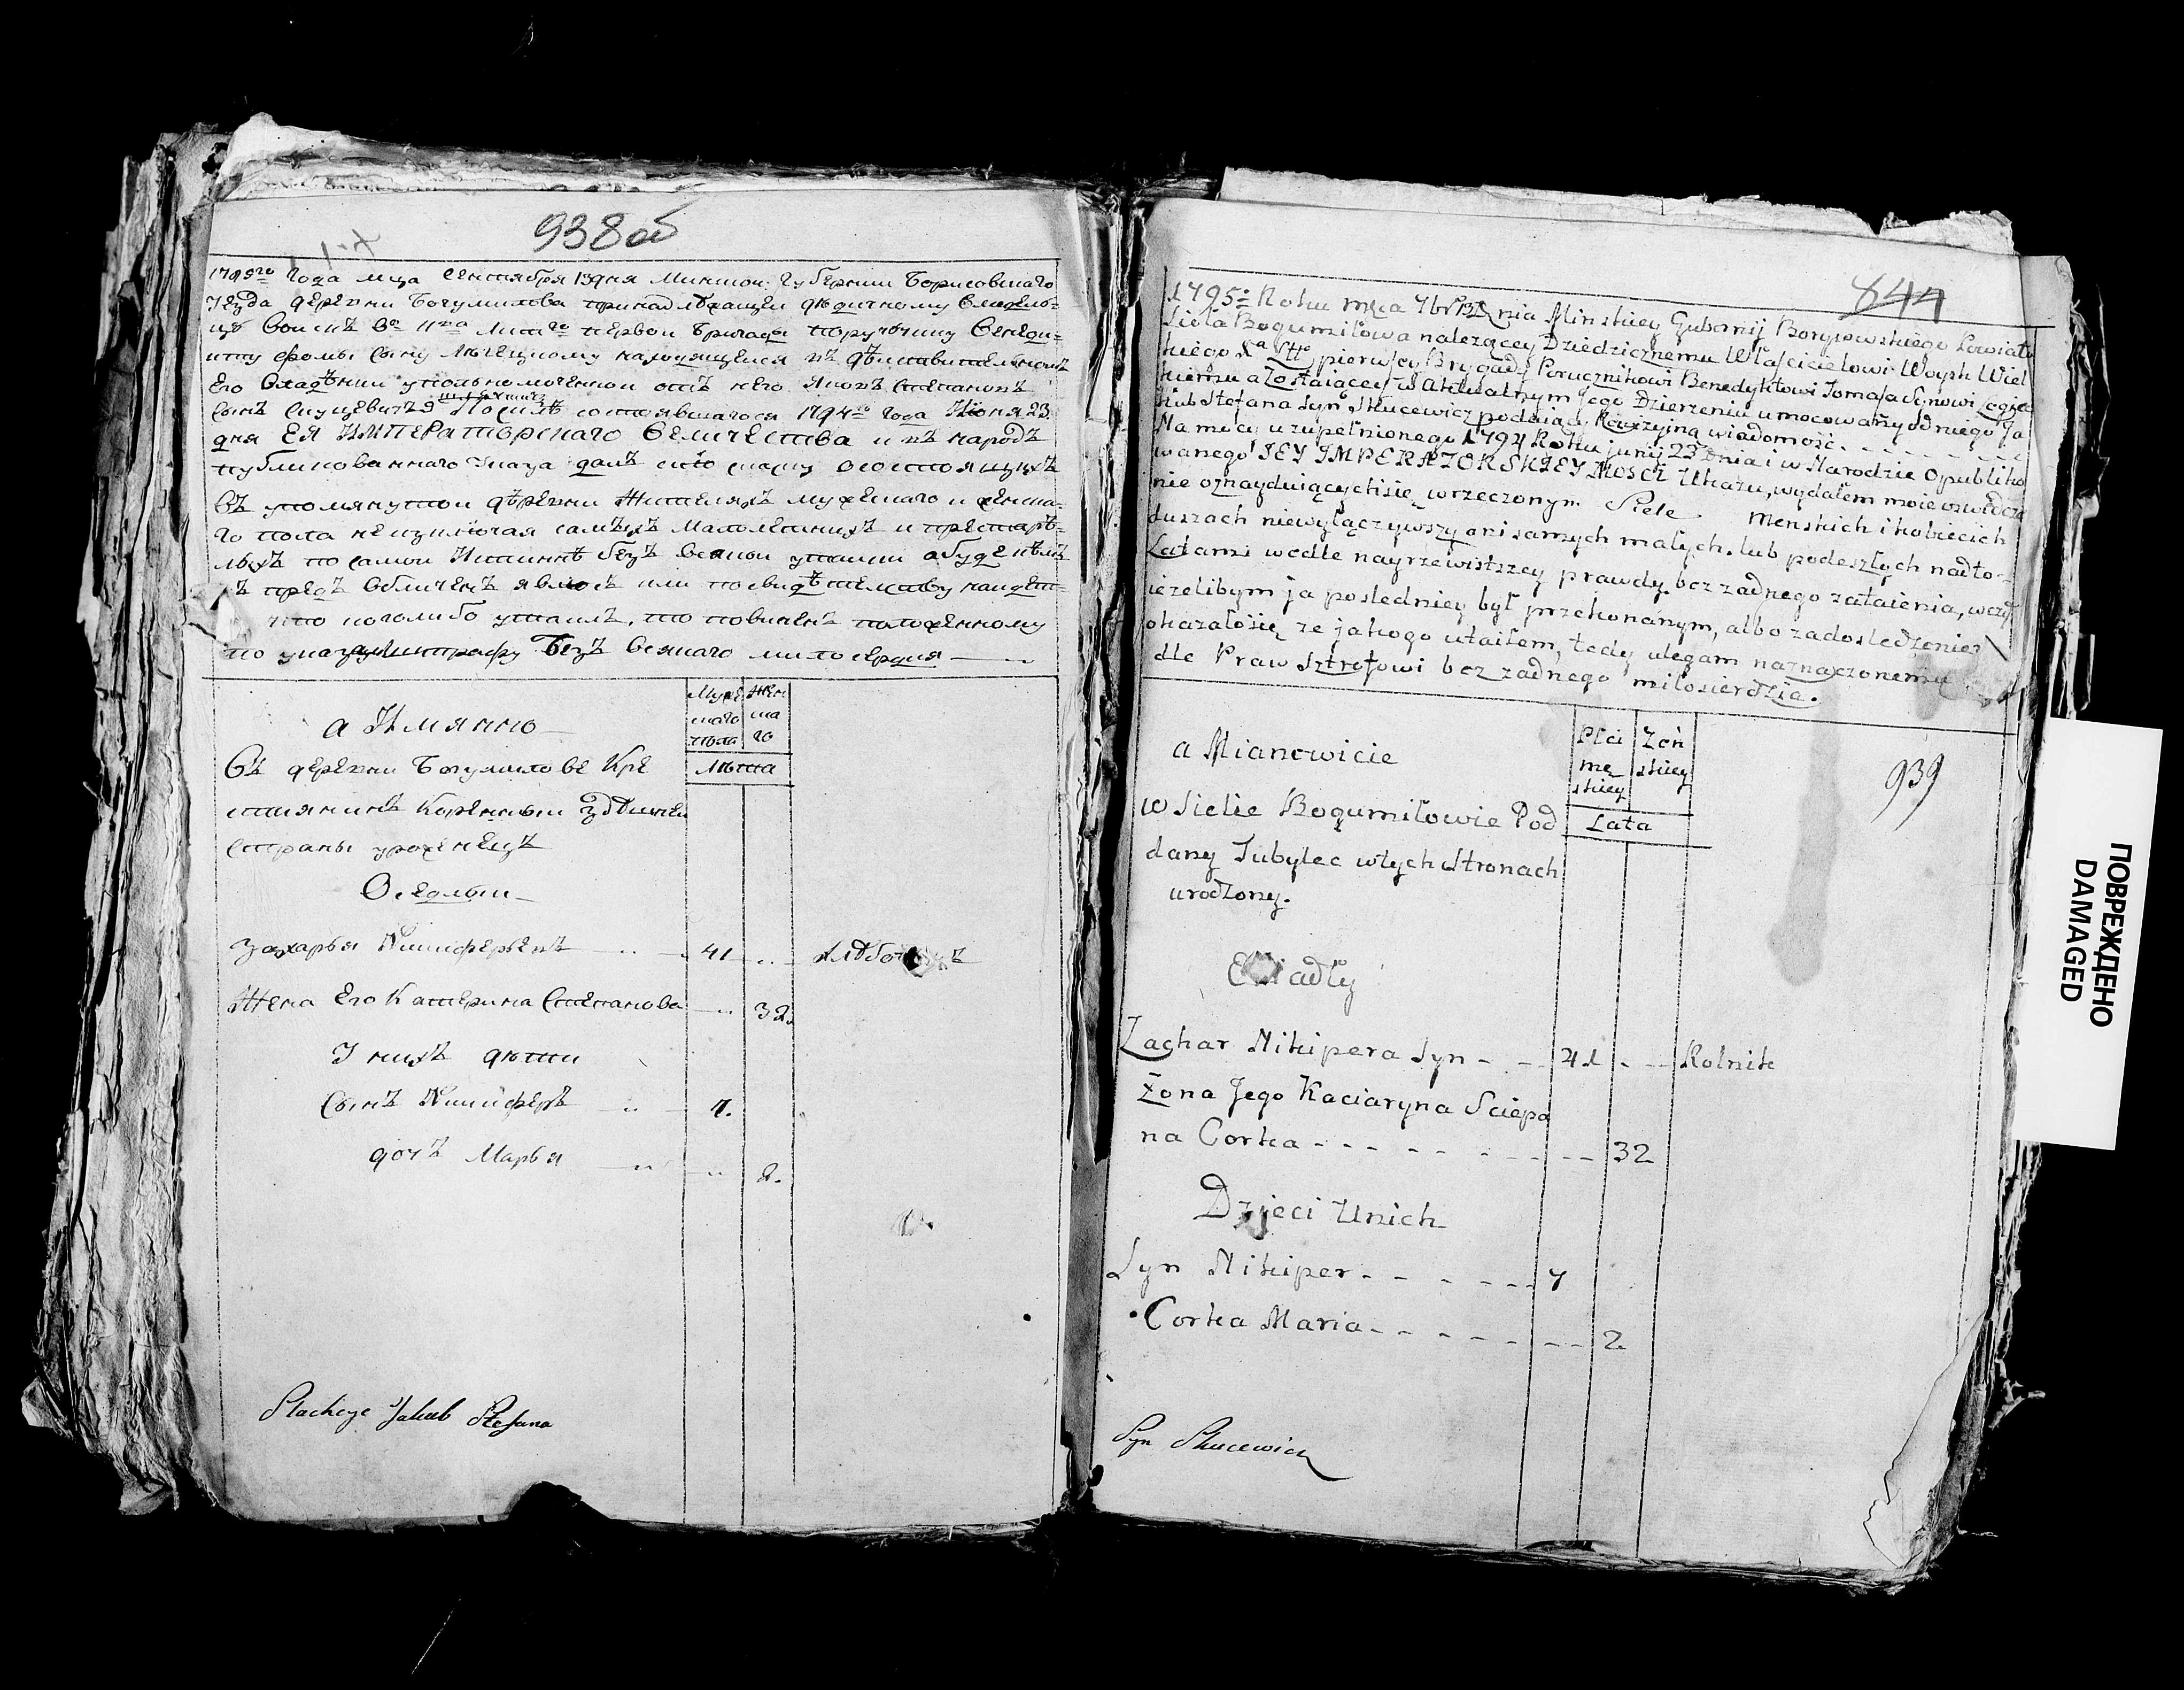 938 об
1795го Года мца Сентября 13 дня Минской Губернии Борисовскаго
уезда деревни Богумилова принадлежащей дедичному Владель-
цу Воискъ Во Кнва Лит го первой Бригады поручнику Бенеди-
кту Фомы сыну находящейся въ действительномъ
его Владении уполномоченной отъ него Яковъ Степановъ
сынъ Слуцевичъ после состоявшагося 1794го Года Июня 23
дня ЕЯ ИМПЕРАТОРСКАГО Величества и въ народъ
публикованнаго Указа далъ сию скаску о состоящихъ
въ упомянутой деревни Жителяхъ мужескаго и женска-
го пола не изключая самыхъ малолетнихъ и престаре-
лыхъ по самой Истинне безъ всякой утайки а буде
предъ обличенъ явлюсь или по свидетельству найдет-
что коголибо утаилъ, то повиненъ положенному
по указу штрафу безъ всякаго милосердия
а Имянно
Мужескаго пола
Женскаго
Лета
Въ деревни Богумилове Кре
стиянинъ Коренный здешней
Страны уроженецъ
Оседлый
Захарья Никиферьевъ 41
Жена Его Катерина Степанова 32
У нихъ дети
Сынъ Никиферъ 7.
дочь Марья 2.
Słuchcze Jakub Stefana
844
1795o Roku mca 7br 13 Dnia Minskiey Gubernij Borysowskiego Powiatu
Sioła Bogumiłowa nalezącey Dziedzicznemu Właścicielowi Woysk Wiel
kiego Xa Litto pierwszey Brygady Porucznikowi Benedyktowi Tomasza Synowi
kiemu a zostaiącey w Aktualnym Jego Dzierzeniu umocowany od niego Ja
kub Stefana Syn Słucewicz podaiący Rewizyjną wiadomość.
Na mocy uzupełnionego 1794 Roku junij 23 Dnia i w Narodzie Opubliko
wanego JEY IMPERATORSKIEY MOSCI Ukazu, wydałem moie oswiadcze
nie oznayduiącychsię wrzeczonym Siele Menskich i kobiecich
duszach niewyłączywszy ani samych małych. lub podeszłych nadto-
Latami wedle nayrzewistszey prawdy. bez zadnego zataienia, wczym
iezelibym ja posledniey był przekonanym, albo zadosledzeniem
okazałosię ze jakogo utaiłem, tedy ulegam naznaczonemu
dle Praw Sztrofowi bez zadnego miłosierdzia.
939
a Mianowicie
Płci męskiey
Zońskiey
Lata
w Sielie Bogumiłowie Pod
dany Tubylec wtych Stronach
urodzony.
Zachar Nikipera Syn - - 41 - - Rolnik
Żona Jego Kaciaryna Sciepa
na Corka - - - - - 32
Dzieci Unich
Syn Nikiper - - - - - 7
Corka Maria - - - - - 2
Syn Słucewicz
ПОВРЕЖДЕНО
DAMAGED